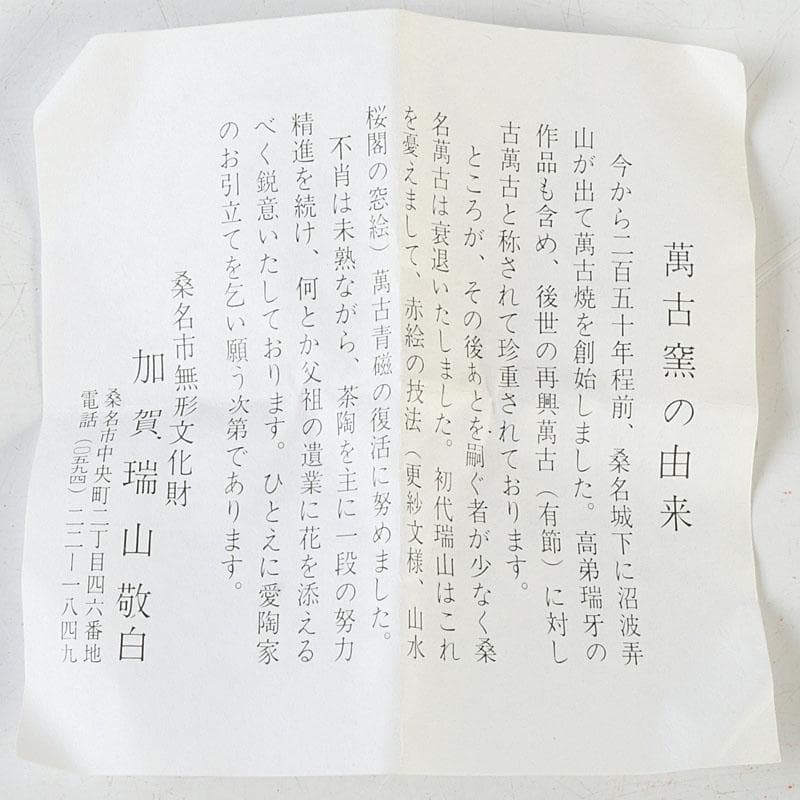 萬古窯の由来
今から二百五十年程前、桑名城下に沼波弄
山が出て萬古焼を創始しました。高弟瑞牙の
作品も含め、後世の再興萬古（有節）に対し
古萬古と称されて珍重されております。
ところが、その後あとを嗣ぐ者が少なく桑
名萬古は衰退いたしました。初代瑞山はこれ
を憂えまして、赤絵の技法（更紗文様、山水
桜閣の窓絵）萬古青磁の復活に努めました。
不肖は未熟ながら、茶陶を主に一段の努力
精進を続け、何とか父祖の遺業に花を添える
べく鋭意いたしております。ひとえに愛陶家
のお引立てを乞い願う次第であります。
桑名市無形文化財
加賀瑞山敬白
桑名市中央町二丁目四六番地
電話（〇五九四）二二ー一八四九